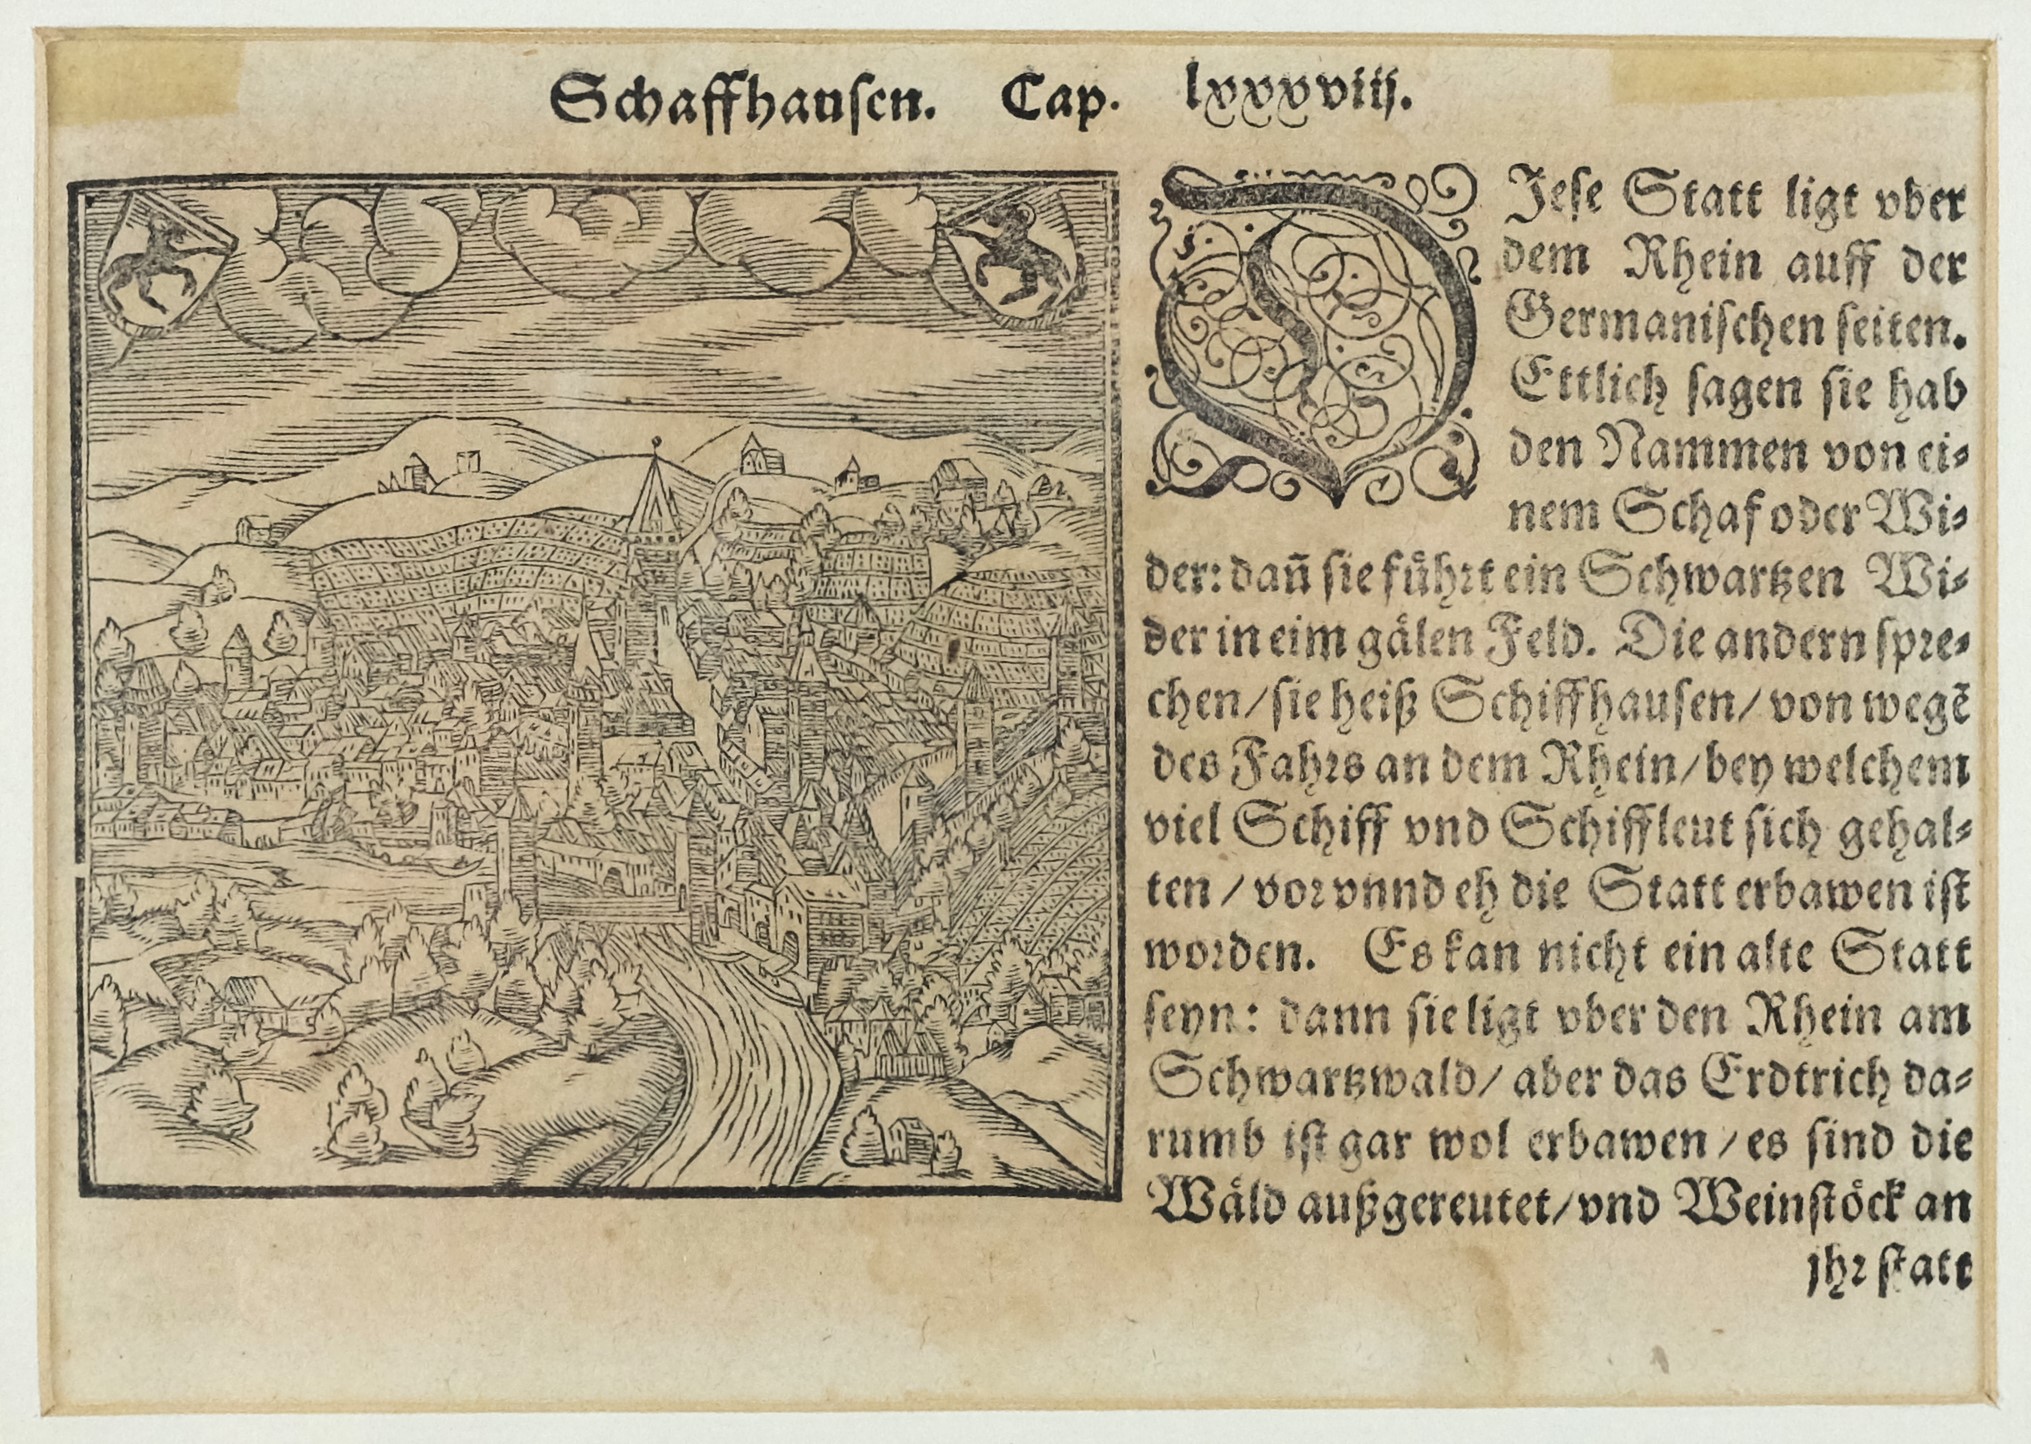 Schaffhausen. Cap. lxxxviij.
DJese Statt ligt vber
dem Rhein auff der
Germanischen seiten.
Ettlich sagen sie hab
den Nammen von ei-
nem Schaf oder Wi-
der: dañ sie führt ein Schwartzen Wi-
der in eim gälen Feld. Die andern spre-
chen/ sie heiß Schiffhausen/ von wegẽ
des Fahrs an dem Rhein/ bey welchem
viel Schiff vnd Schiffleut sich gehal-
ten / vor vnnd eh die Statt erbawen ist
worden. Es kan nicht ein alte Statt
seyn: dann sie ligt vber den Rhein am
Schwartzwald/ aber das Erdtrich da-
rumb ist gar wol erbawen / es sind die
Wäld außgereutet/ vnd Weinstöck an
jhr statt